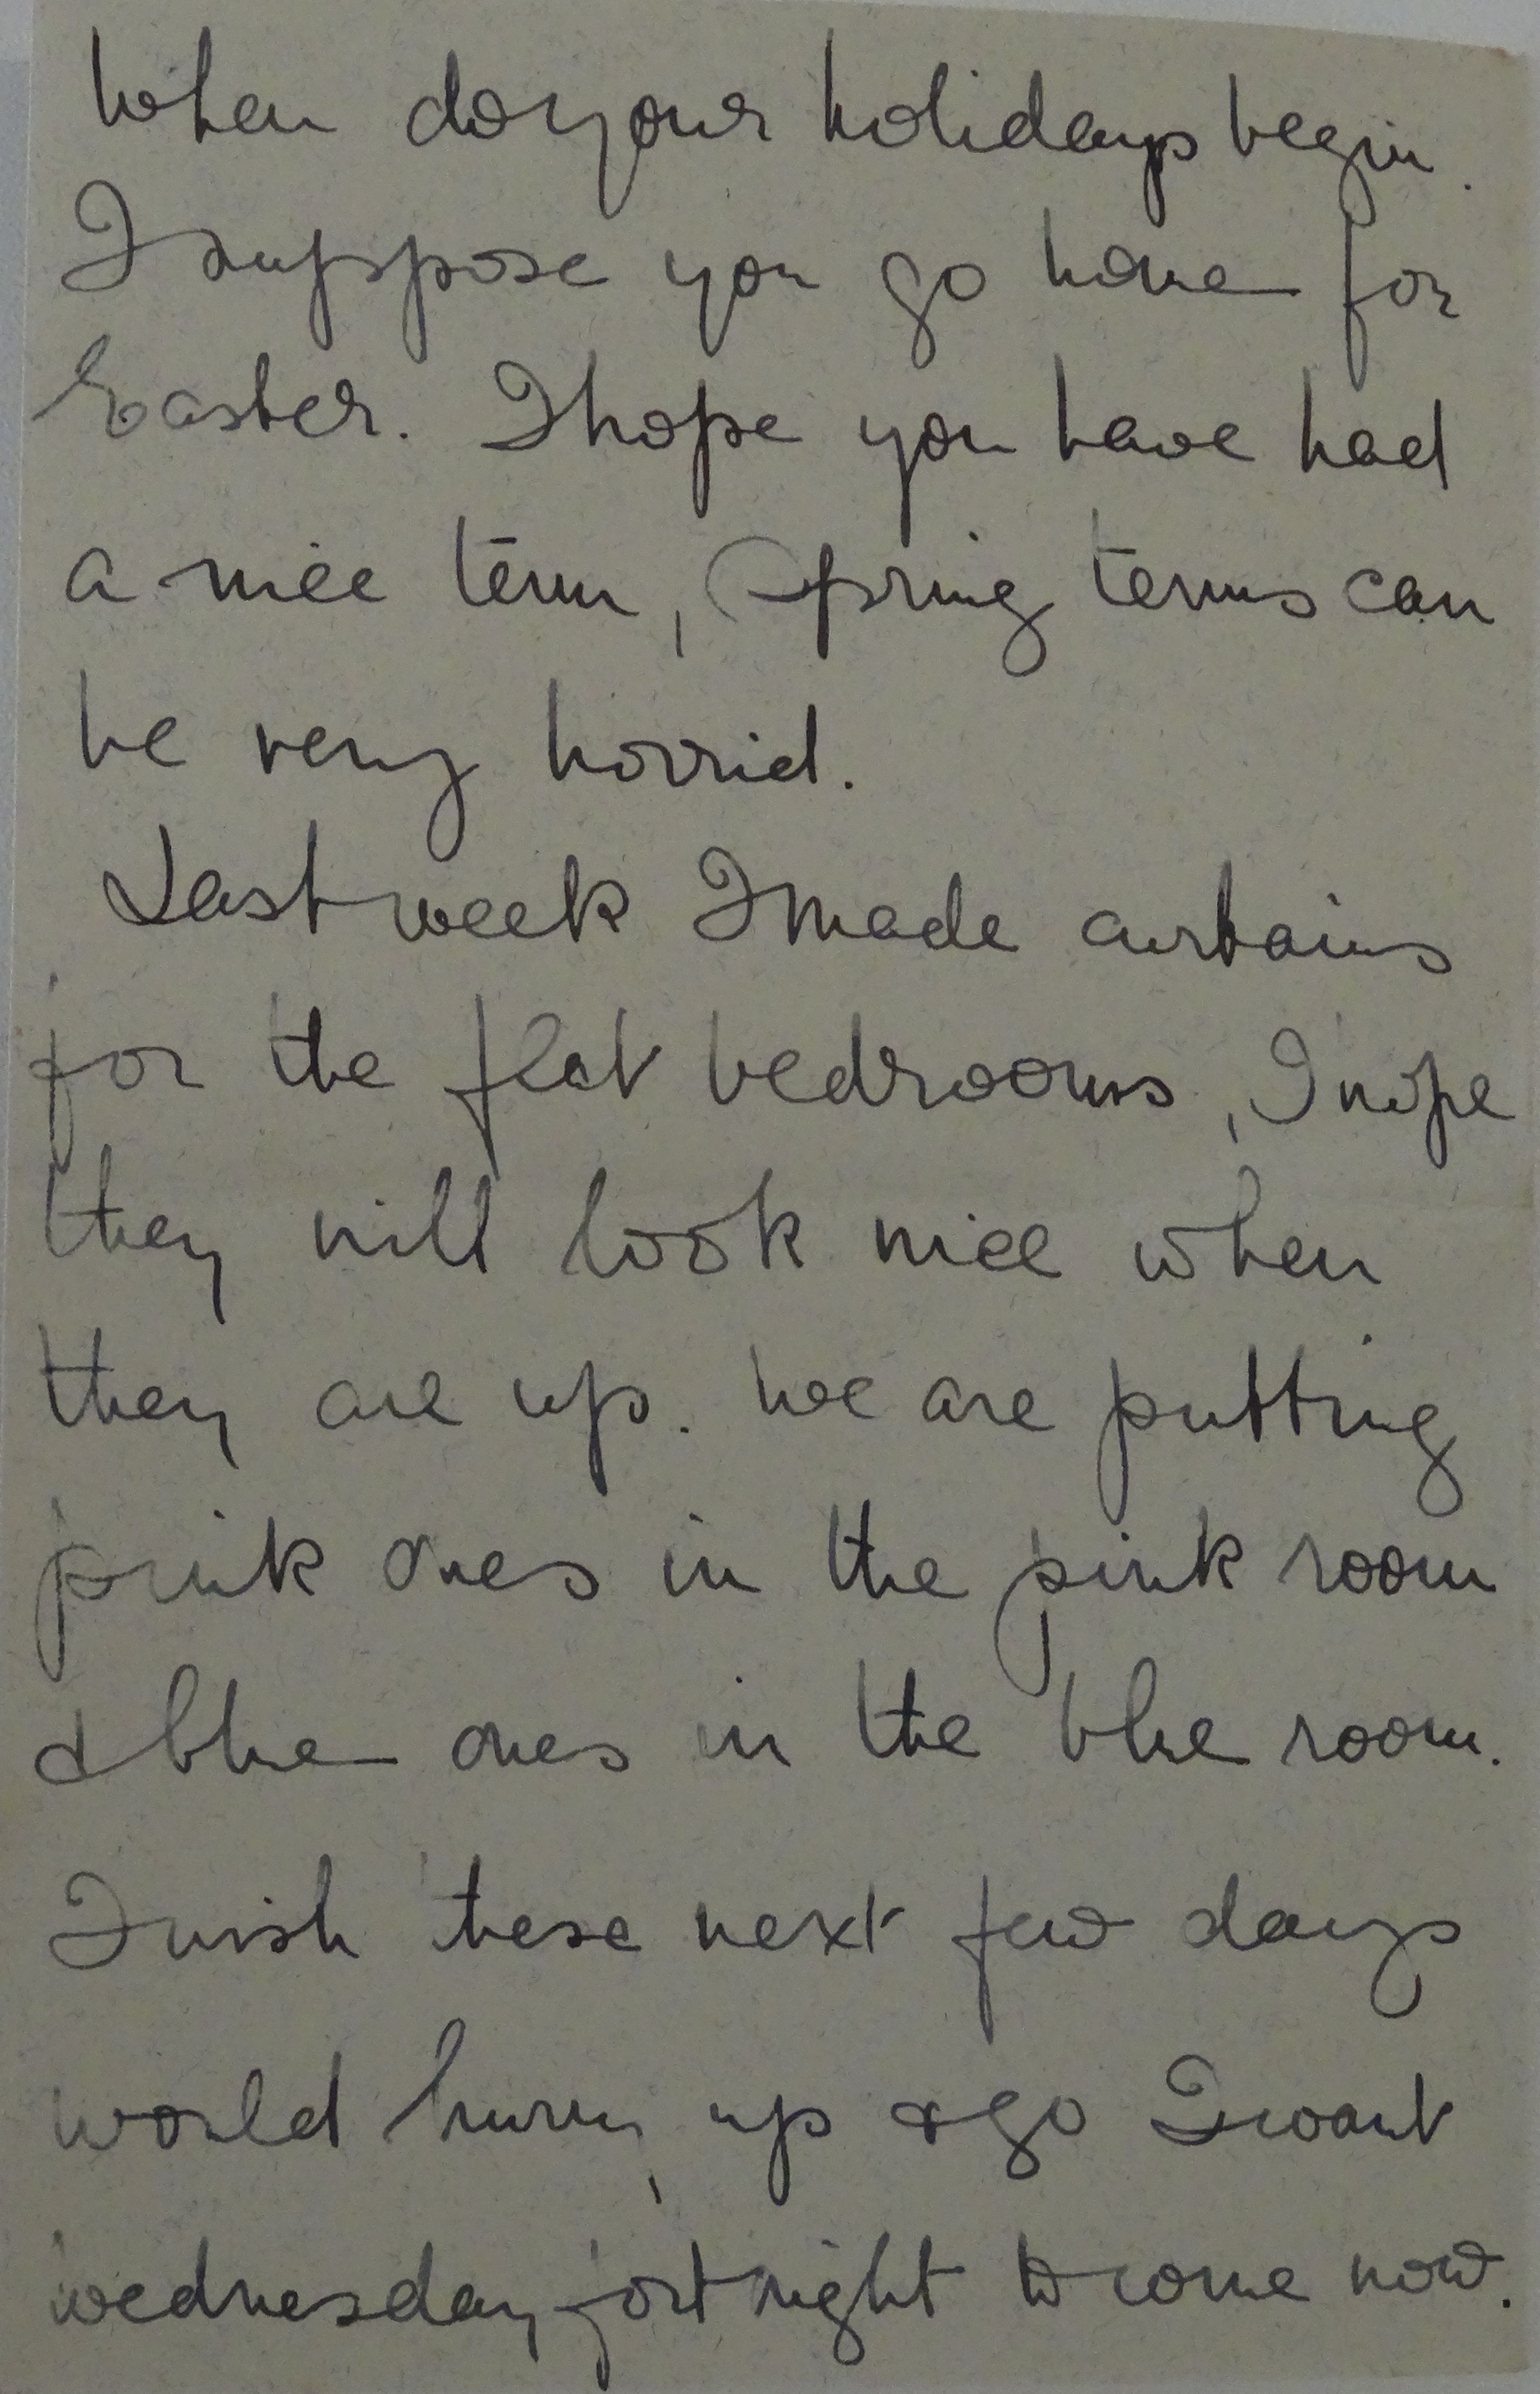 When do your holidays begin.
I suppose you go home for
Easter. I hope you have had
a nice term, Spring terms can
be very horrid.
Last week I made curtains
for the flat bedrooms, I hope
they will look nice when
they are up. We are putting
pink ones in the pink room
& blue ones in the blue room.
I wish these next few days
would hurry up & go I want
Wednesday fortnight to come now.